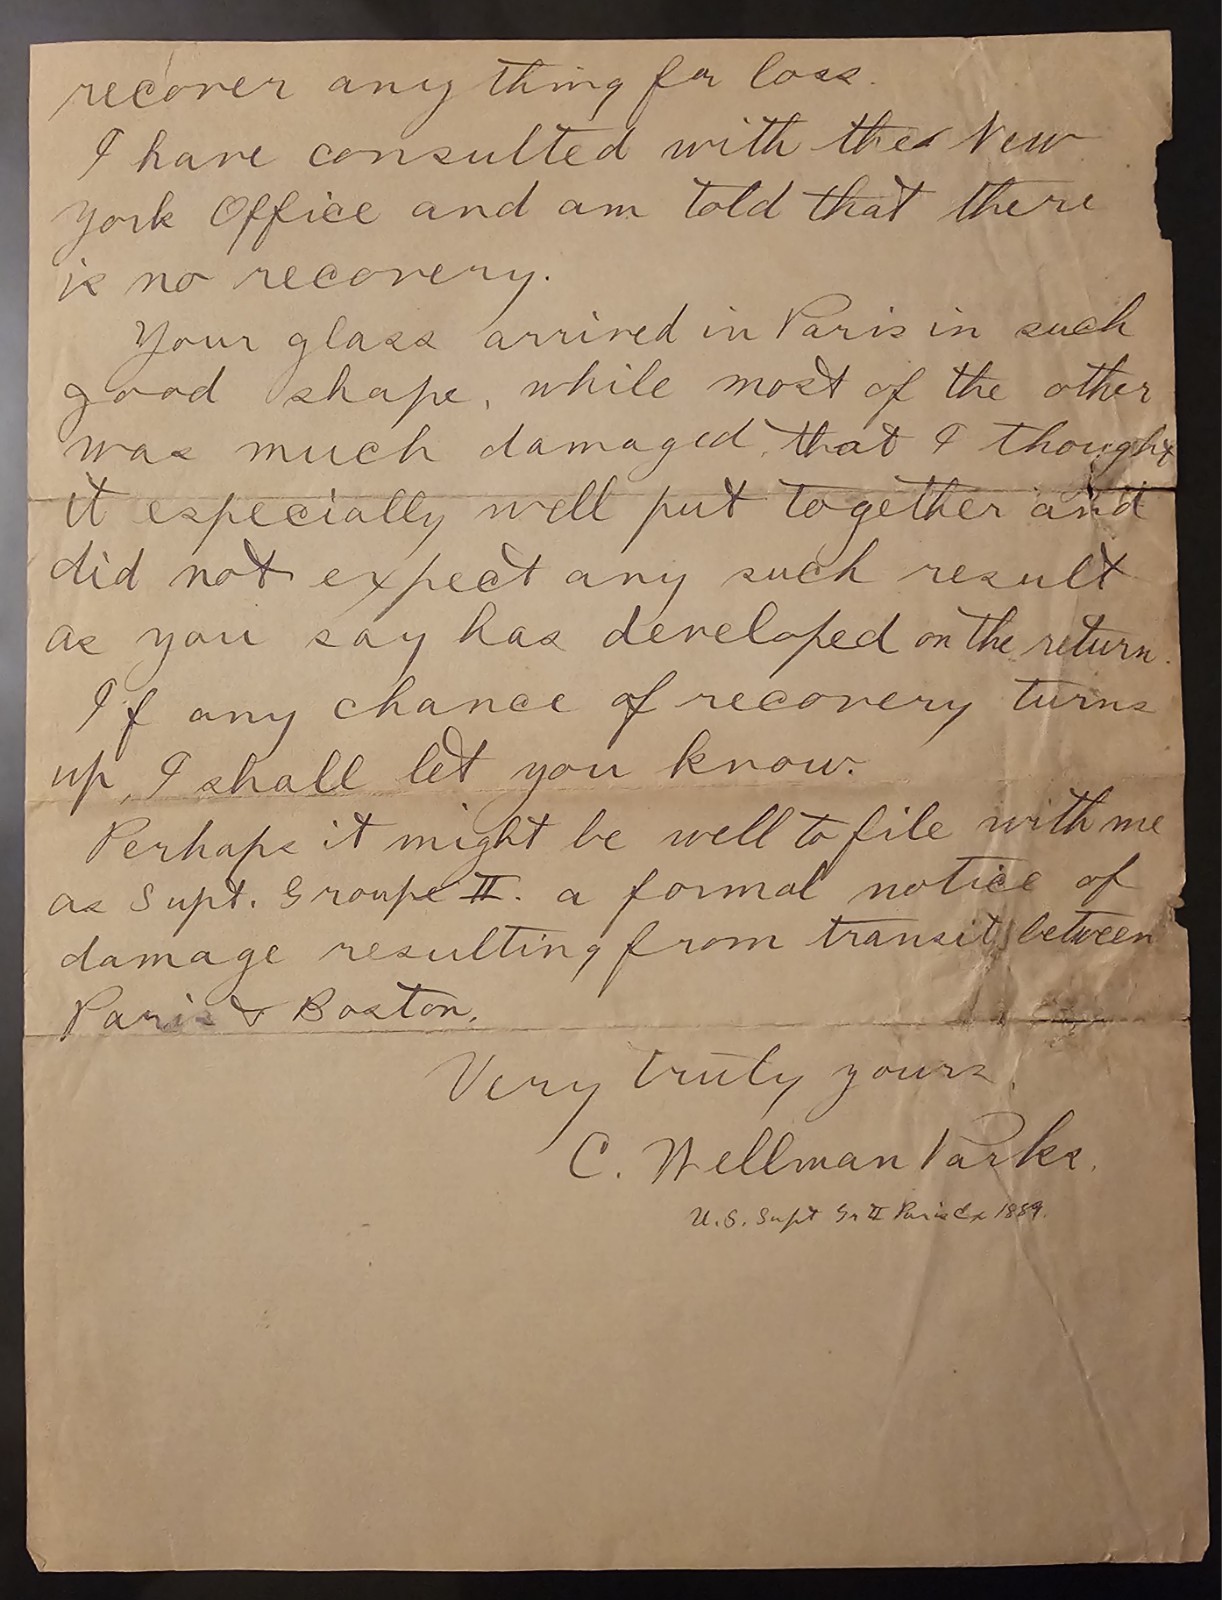 recover any thing for loss.
I have consulted with the New
York Office and am told that there
is no recovery.
Your glass arrived in Paris in such
good shape, while most of the other
was much damaged, that I thought
it especially well put together and
did not expect any such result
as you say has developed on the return.
If any chance of recovery turns
up, I shall let you know.
Perhaps it might be well to file with me
as Supt. Groupe II. a formal notice of
damage resulting from transit between
Paris & Boston.
Very truly yours,
C. Wellman Parks.
U.S. Supt Gr II Paris Ex 1889.